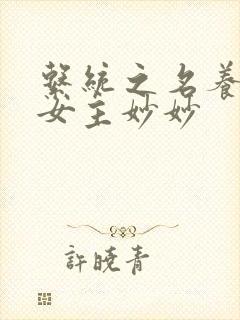 繫統之名養
女主妙妙
許曉青